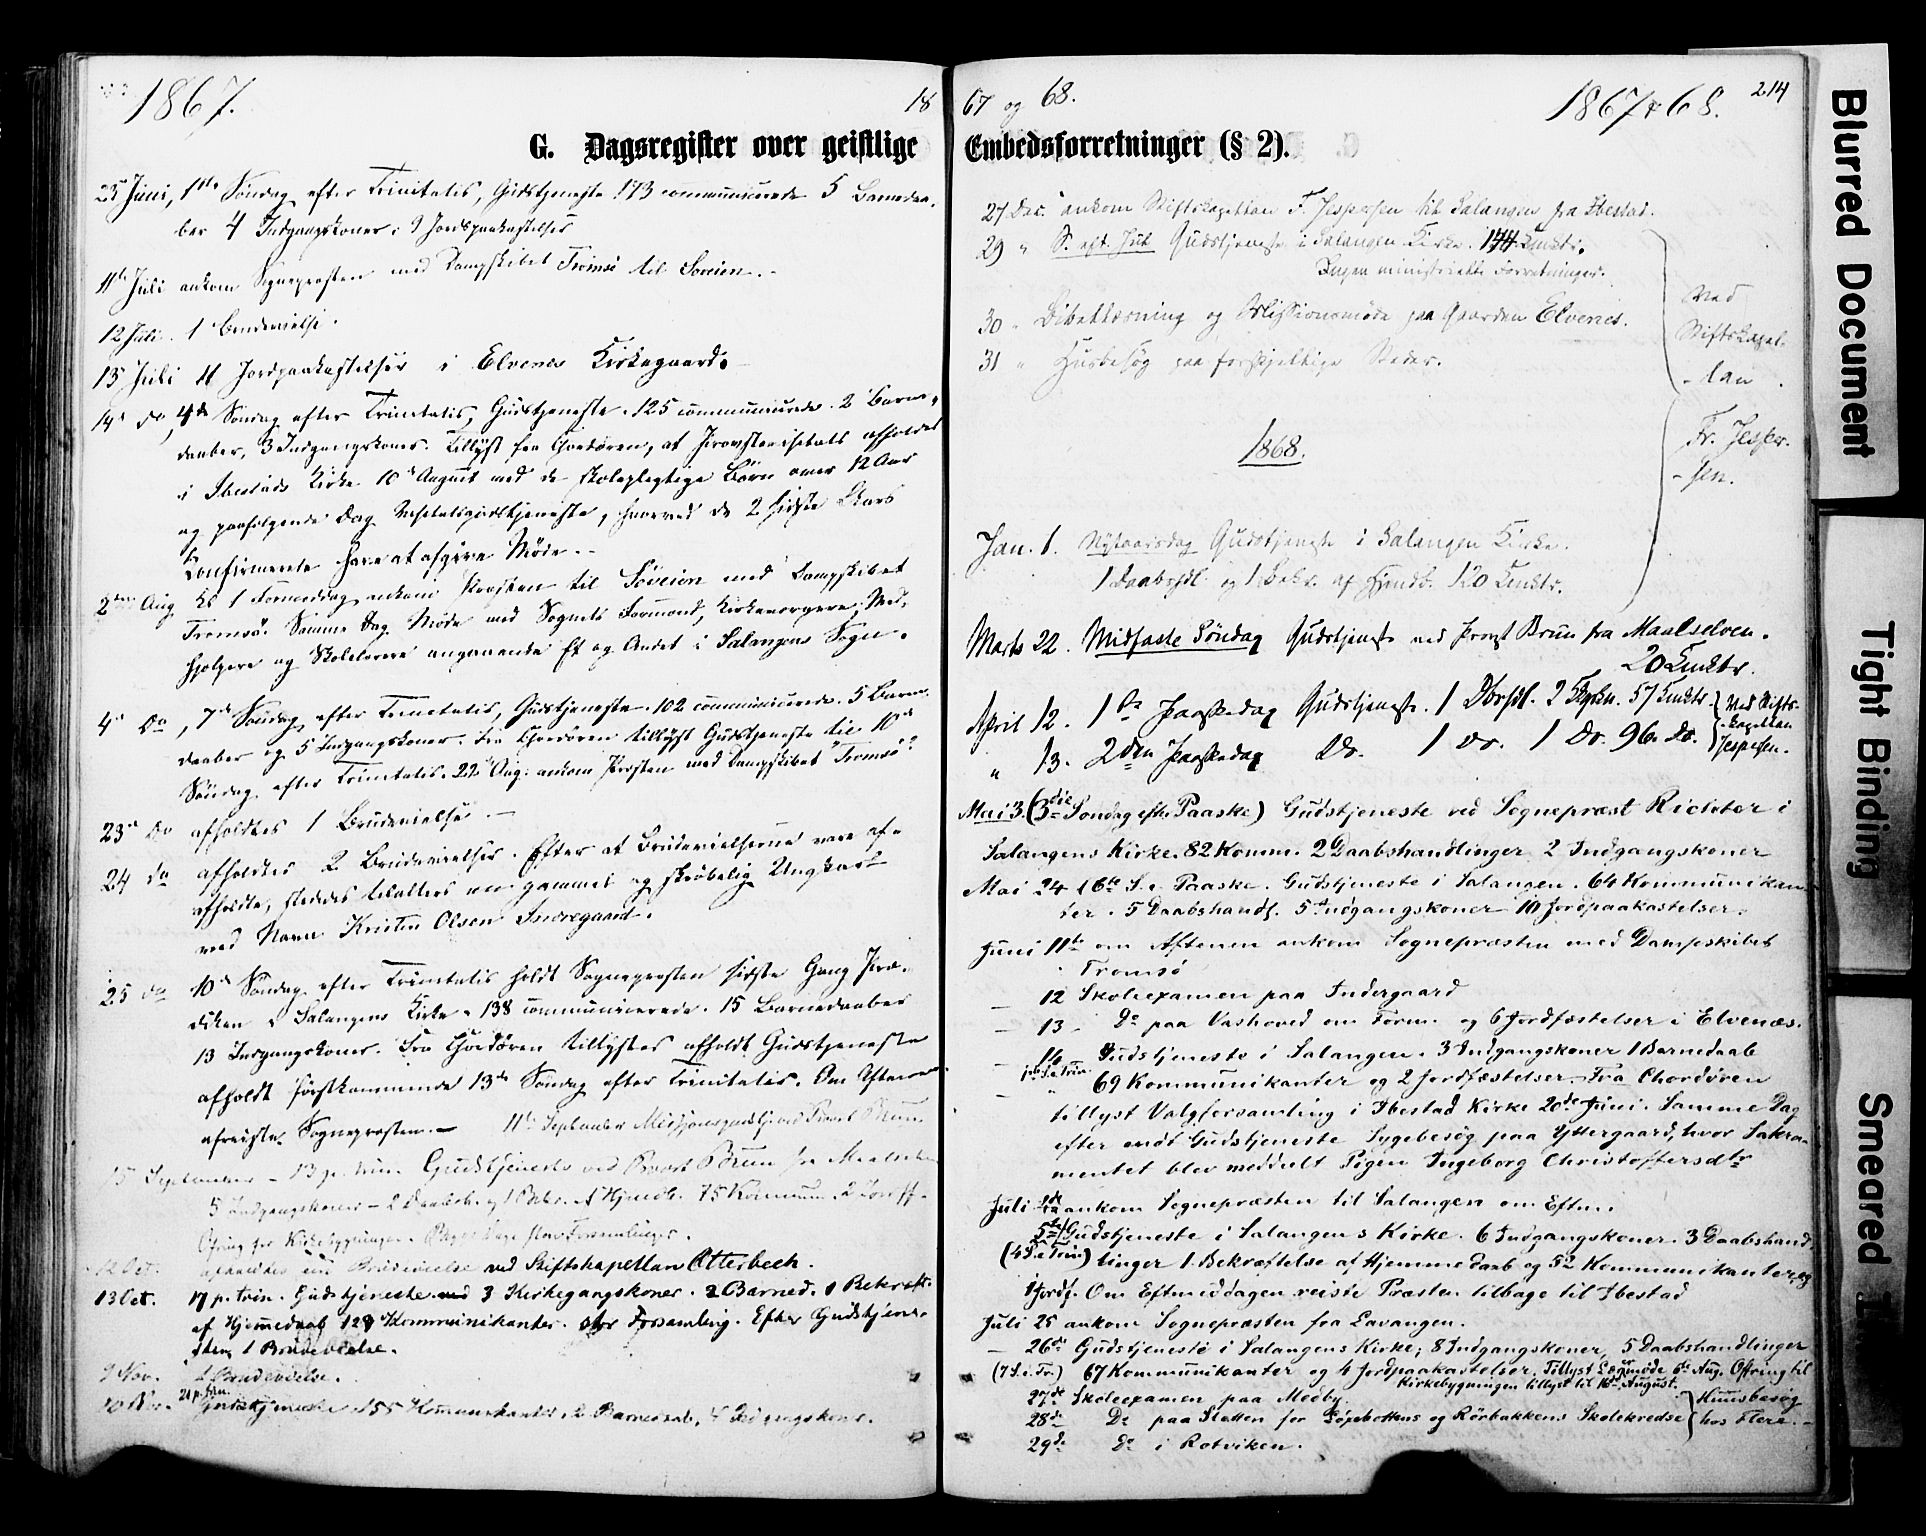 1867.
18
G. Dagsregister over geistlige
23 Juni, 1ste Søndag efter Trinitatis, Gudstjeneste 173 communicerede 5 Barnedaa-
ber 4 Indgangskoner 9 Jordpaakastelser
11te Juli ankom Sognepresten med Dampskibet Tromsø til Søveien.
12 Juli. 1 Brudevielse.
13 Juli 11 Jordpaakastelser i Elvenes Kirkegaard.
14de do, 4de Søndag efter Trinitatis, Gudstjeneste. 125 communicerede. 2 Barne-
daaber, 3 Indgangskoner. Tillyst fra Chordøren, at Provstevisitats afholdes
i Ibestads Kirke 10de August med de skolepligtige Børn over 12 Aar
og paafølgende Dag Visitatsgudstjeneste, hvorved de 2 sidste Aars
Konfirmerede have at afgive Møde.
2den Aug Kl 1 Formiddag ankom Presten til Søveien med Dampskibet
Tromsø. Samme Dag Møde med Sognets Formænd, Kirkeværgere, Med-
hjælpere og Skolelærere angaaende Et og Andet i Salangens Sogn.
4de Do, 7de Søndag efter Trinitatis, Gudstjeneste. 102 communicerede. 5 Barne-
daaber og 5 Indgangskoner. Fra Chordøren tillyst Gudstjeneste til 10de
Søndag efter Trinitatis. 22 Aug. ankom Presten med Dampskibet "Tromsø"
23de Do afholdtes 1 Brudevielse.
24 do afholdtes 2 Brudevielser. Efter at Brudevielserne vare af-
afholdte, stededes til Alters en gammel og skrøbelig Ungkarl
ved Navn Kristen Olsen Inderegaard.
25 do 10de Søndag efter Trinitatis holdt Sognepresten sidste Gang Præ-
diken i Salangens Kirke. 138 communicerede. 15 Barnedaaber
13 Indgangskoner. Fra Chordøren tillystes afholdt Gudstjeneste
afholdt førstkommende 13de Søndag efter Trinitatis. Om Aftenen
afreiste Sognepresten. — 11te September Missionsgudstj. ved Provst Brun
15 September – 13 p. trin. Gudstjeneste ved Provst Brun fra Maalselven
5 Indgangskoner – 2 Daabsh. og 1 Bekr. af Hjmdb. 75 Kommun. 2 Jordf.
Ofring for Kirkebygningen.
12 Oct. afholdtes en Brudevielse ved Stiftskapellan Otterbech.
13 Oct. 17 p. trin. Gudstjeneste 3 Kirkegangskoner. 2 Barned. 1 Bekræft.
af Hjemmedaab 128 Kommunikanter. stor Forsamling. Efter Gudstjene-
sten 1 Brudevielse.
9 Nov. 1 Brudevielse.
10 Nov. 21 p. trin. Gudstjeneste 155 Kommunikanter, 2 Barnedaab, 4 Indgangskoner.
67 og 68.
1867 & 68.
214
Embedsforretninger (§ 2).
27 Dec. ankom Stiftskapellan F. Jespersen til Salangen fra Ibestad.
29 " S. eft. Jul Gudstjeneste i Salangen Kirke. 144 Kmktr.
Ingen ministerielle Forretninger.
30 " Bibellæsning og Missionsmøde paa Gaarden Elvenes.
31 " Husbesøg paa forskjellige Steder.
Ved
Stiftskapel-
-lan
Fr. Jesper-
-sen.
1868.
Jan. 1. Nytaarsdag Gudstjeneste i Salangen Kirke.
1 Daabshdl. og 1 Bekr. af Hjmdb. 120 Kmktr.
Marts 22. Midfaste Søndag Gudstjeneste ved Provst Brun fra Maalselven.
20 Kmktr.
April 12. 1ste Paaskedag Gudstjeneste. 1 Dbshdl. 2 Kgkn. 57 Kmktr.
" 13. 2den Paaskedag Do. 1 Do. 1 Do. 96. Do.
Ved Stifts-
kapellan
Jespersen.
Mai 3. (3die Søndag efter Paaske) Gudstjeneste ved Sognepræst Richter i
Salangens Kirke. 82 Komm. 2 Daabshandlinger 2 Indgangskoner
Mai 24 (6te S. e. Paaske. Gudstjeneste i Salangen. 64 Kommunikan-
ter. 5 Daabshandl. 5 Indgangskoner 10 Jordpaakastelser.
Juni 11te om Aftenen ankom Sognepræsten med Dampskibet
Tromsø
– 12 Skoleexamen paa Indergaard
– 13 – Do paa Vashoved om Form. og 6 Jordfæstelser i Elvenæs.
– 14 Gudstjeneste i Salangen. 3 Indgangskoner 1 Barnedaab
1ste S. e. Trin. 69 Kommunikanter og 2 Jordfæstelser. Fra Chordøren
tillyst Valgforsamling i Ibestad Kirke 20de Juni. Samme Dag
efter endt Gudstjeneste Sygebesøg paa Yttergaard, hvor Sakra-
mentet blev meddelt Pigen Ingeborg Christoffersdtr
Juli ankom Sognepræsten til Salangen om Eftm.
5te Gudstjeneste i Salangens Kirke. 6 Indgangskoner. 3 Daabshand-
(4 S. e. Trin) linger 1 Bekræftelse af Hjemmedaab og 52 Kommunikanter, og
1 Jordf. Om Eftmiddagen reiste Præsten tilbage til Ibestad
Juli 25 ankom Sognepræsten fra Lavangen.
– 26de Gudstjeneste i Salangens Kirke; 8 Indgangskoner 5 Daabshandlinger
(7 S. e. Tr.) 67 Kommunikanter og 4 Jordpaakastelser. Tillyst Lægmøde 6te Aug. Ofring til
Kirkebygningen tillyst til 16de August.
27de Skoleexamen paa Medby
28de Do paa Sletten for og Rørbakkens Skolekredse
29de Do i Rotviken.
Huusbesøg
hos Flere. –
Blurred Document
Tight Binding
Smeared